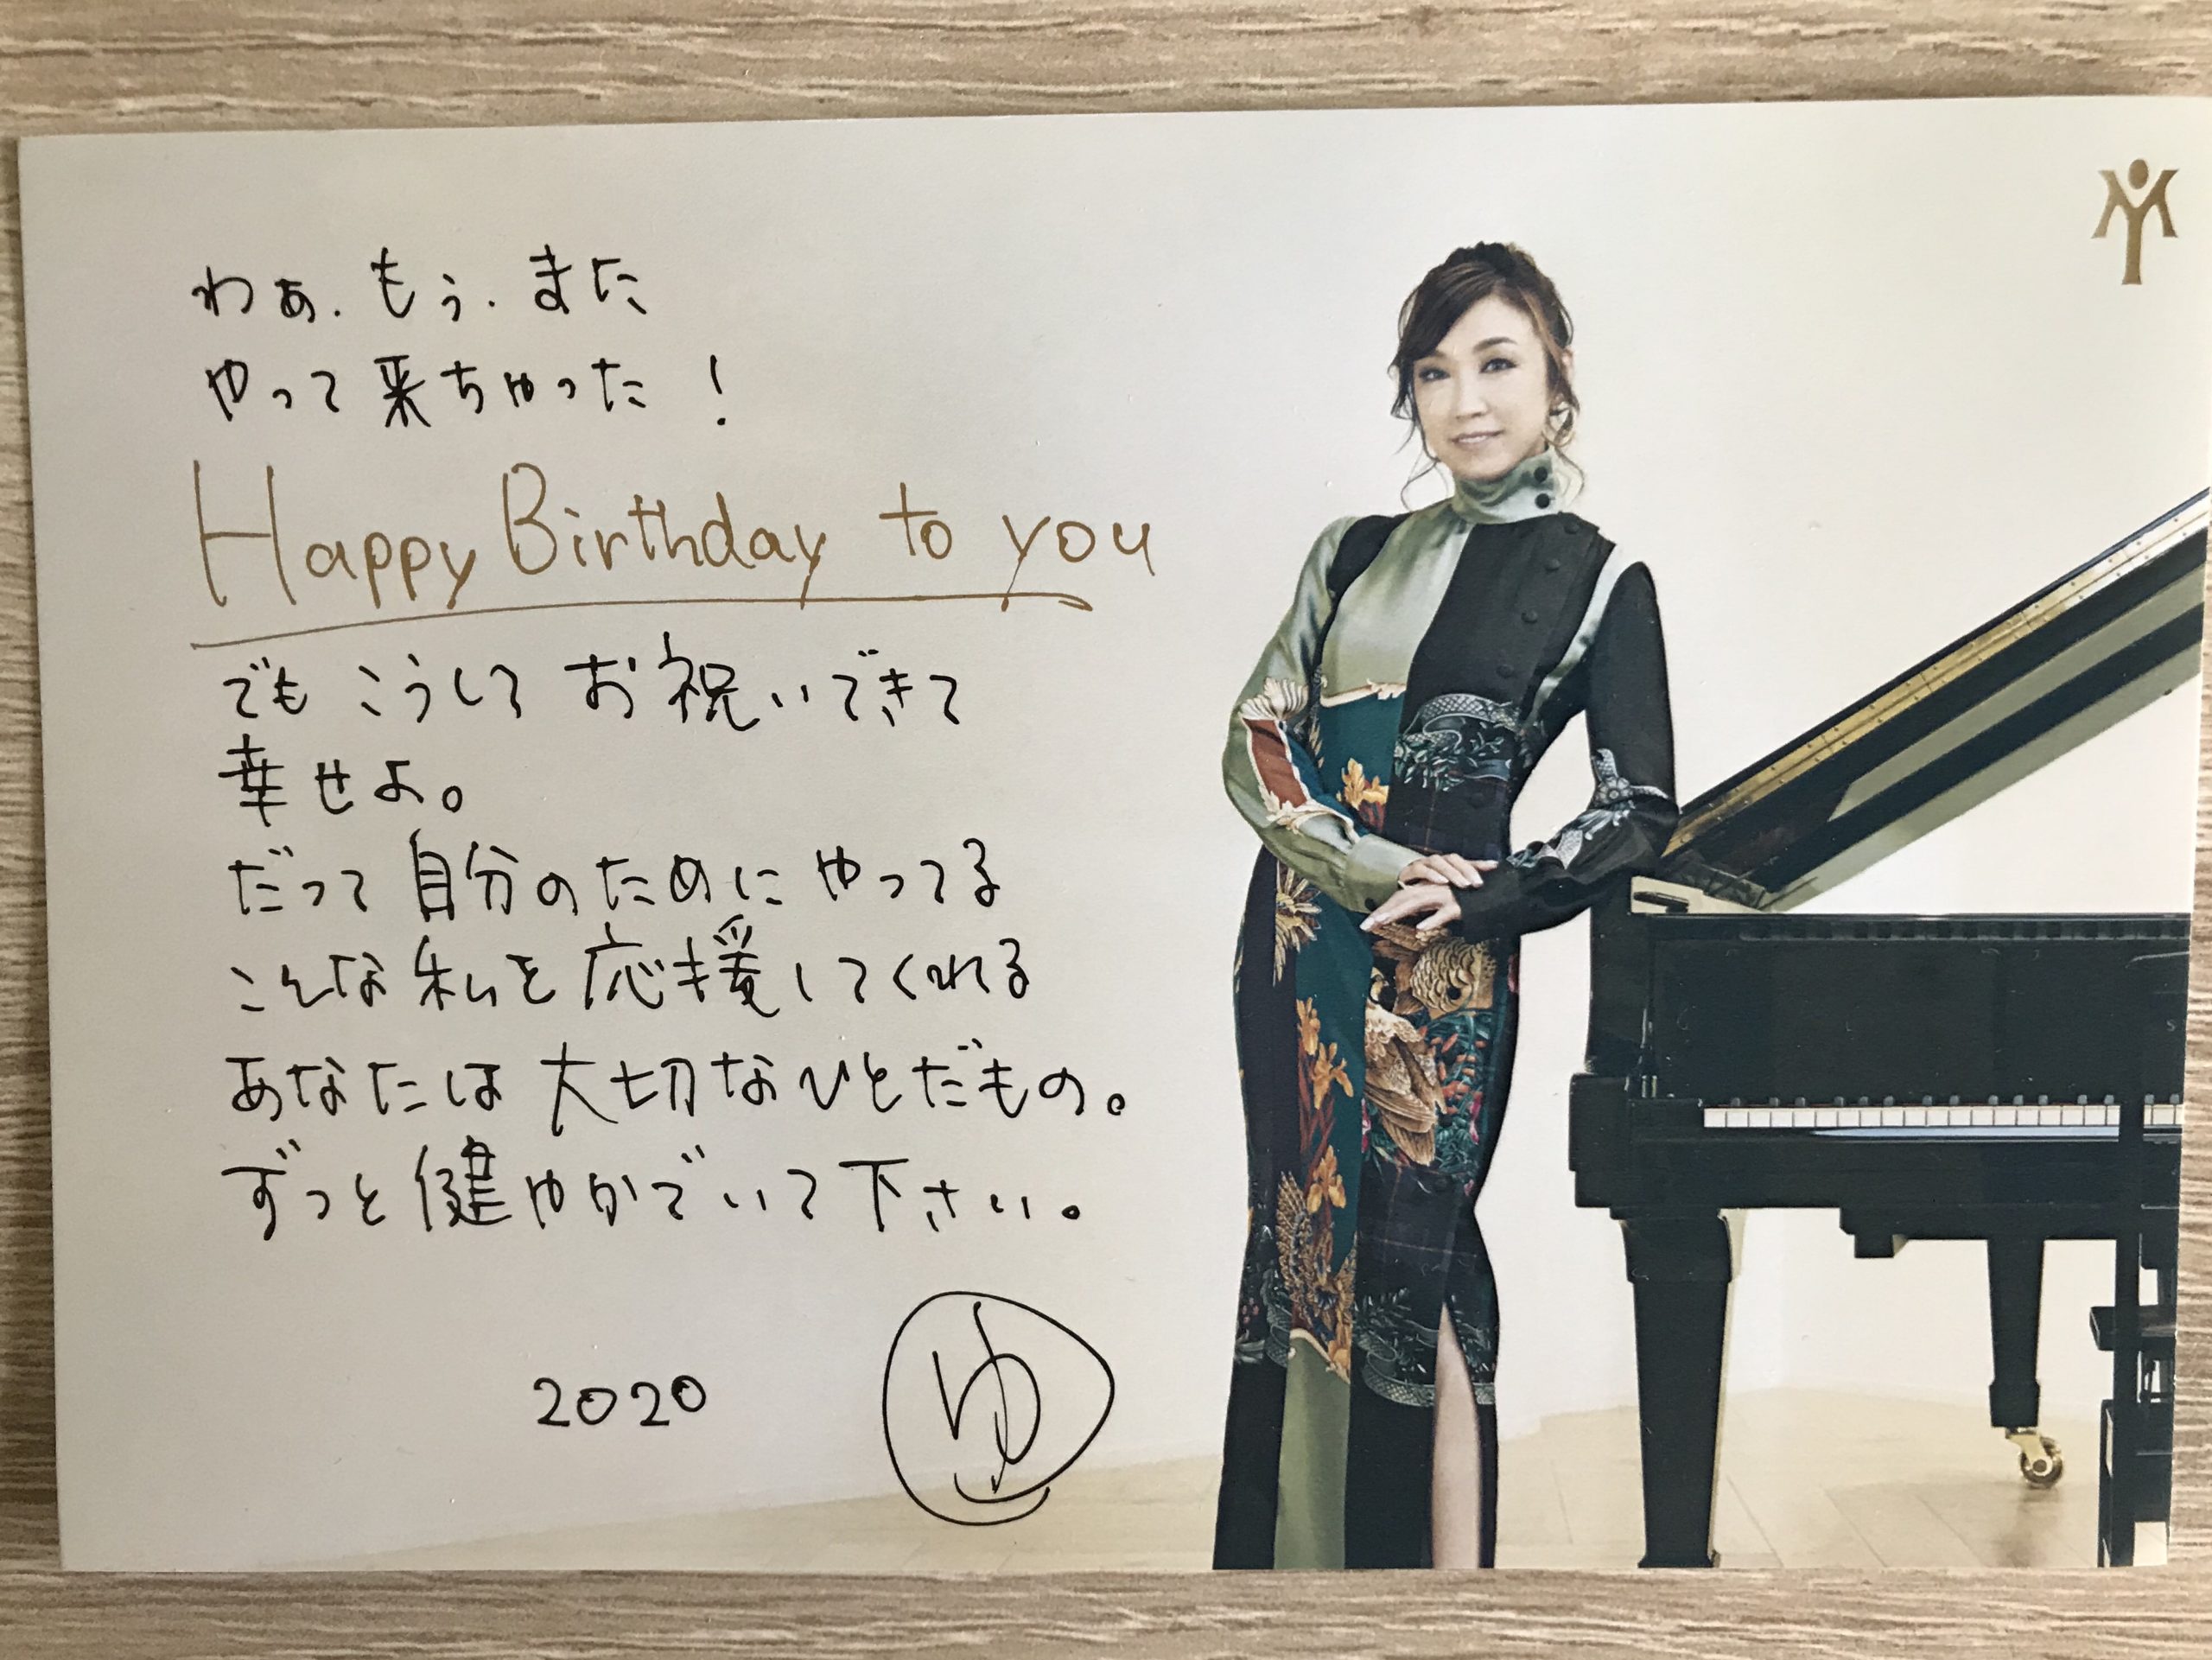 わぁ．もぅ．また
やって来ちゃった！
Happy Birthday to you
でもこうしてお祝いできて
幸せよ。
だって自分のためにやってる
こんな私を応援してくれる
あなたは大切なひとだもの。
ずっと健やかでいて下さい。
2020
ゆ